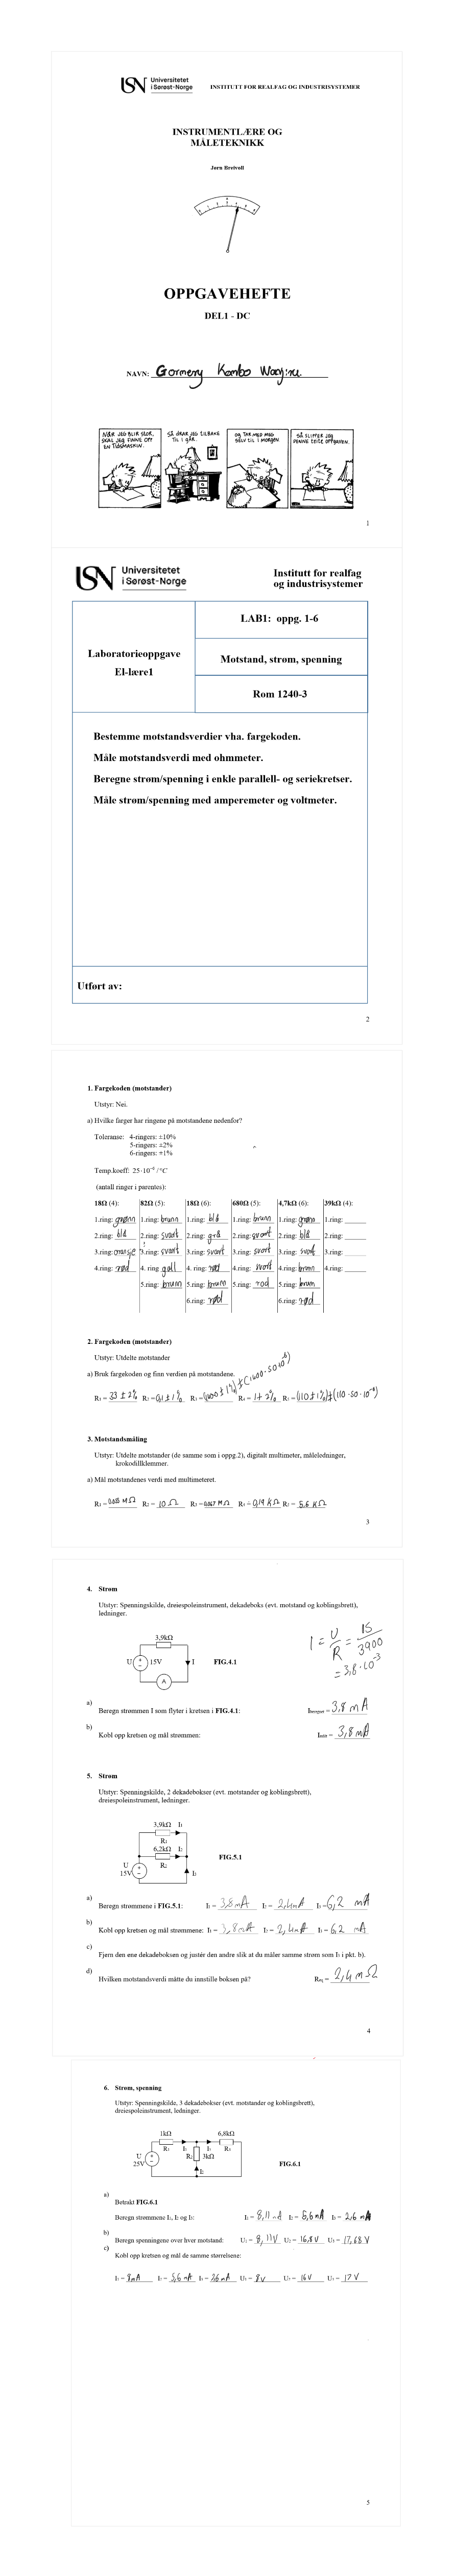 USN Universitetet i Sørøst-Norge
INSTITUTT FOR REALFAG OG INDUSTRISYSTEMER
INSTRUMENTLÆRE OG
MÅLETEKNIKK
Jørn Breivoll
OPPGAVEHEFTE
DEL1 - DC
NAVN: Gormery Kombo Wanjiru
NÅR JEG BLIR STOR, SKAL JEG FINNE OPP EN TIDSMASKIN.
SÅ DRAR JEG TILBAKE TIL I GÅR..
OG TAR MED MEG SELV TIL I MORGEN
SÅ SLIPPER JEG DENNE TEITE OPPGAVEN.
1
USN Universitetet i Sørøst-Norge
Institutt for realfag
og industrisystemer
Laboratorieoppgave
El-lære1
LAB1: oppg. 1-6
Motstand, strøm, spenning
Rom 1240-3
Bestemme motstandsverdier vha. fargekoden.
Måle motstandsverdi med ohmmeter.
Beregne strøm/spenning i enkle parallell- og seriekretser.
Måle strøm/spenning med amperemeter og voltmeter.
Utført av:
2
1. Fargekoden (motstander)
Utstyr: Nei.
a) Hvilke farger har ringene på motstandene nedenfor?
Toleranse: 4-ringers: ±10%
5-ringers: ±2%
6-ringers: ±1%
Temp.koeff: 25·10⁻⁶ /°C
(antall ringer i parentes):
18Ω (4): 82Ω (5): 18Ω (6): 680Ω (5): 4,7kΩ (6): 39kΩ (4):
1.ring: grønn 1.ring: brunn 1.ring: blå 1.ring: brunn 1.ring: grønn 1.ring:
2.ring: blå 2.ring: svart 2.ring: grå 2.ring: svart 2.ring: blå 2.ring:
3.ring: oransje 3.ring: svart 3.ring: svart 3.ring: svart 3.ring: svart 3.ring:
4.ring: rød 4. ring gull 4.ring: rød 4.ring: svart 4.ring: brunn 4.ring:
5.ring: brunn 5.ring: brunn 5.ring: rød 5.ring: brunn
6.ring: rød 6.ring: rød
2. Fargekoden (motstander)
Utstyr: Utdelte motstander
a) Bruk fargekoden og finn verdien på motstandene.
R₁ = 33 ± 2% R₂ = 0,1 ± 1% R₃ = (1600 ± 1%) ± (1600 · 50·10⁻⁶) R₄ = 1 ± 2% R₅ = (110 ± 1%) ± (110 · 50 · 10⁻⁶)
3. Motstandsmåling
Utstyr: Utdelte motstander (de samme som i oppg.2), digitalt multimeter, måleledninger,
krokodillklemmer.
a) Mål motstandenes verdi med multimeteret.
R₁ = MΩ R₂ = 10 Ω R₃ = 0,067 MΩ R₄ = 0,14 KΩ R₅ = 5,6 KΩ
3
4. Strøm
Utstyr: Spenningskilde, dreiespoleinstrument, dekadeboks (evt. motstand og koblingsbrett),
ledninger.
3,9kΩ
U 15V I
A
FIG.4.1
I = U/R = 15/3900
= 3,8·10⁻³
a)
Beregn strømmen I som flyter i kretsen i FIG.4.1: Iberegnet = 3,8 mA
b)
Kobl opp kretsen og mål strømmen: Imålt = 3,8 mA
5. Strøm
Utstyr: Spenningskilde, 2 dekadebokser (evt. motstander og koblingsbrett),
dreiespoleinstrument, ledninger.
3,9kΩ I₁
R₁
6,2kΩ I₂
R₂
U
15V I₃
FIG.5.1
a)
Beregn strømmene i FIG.5.1: I₁ = 3,8mA I₂ = 2,4mA I₃ = 6,2 mA
b)
Kobl opp kretsen og mål strømmene: I₁ = 3,8mA I₂ = 2,4mA I₃ = 6,2 mA
c)
Fjern den ene dekadeboksen og justér den andre slik at du måler samme strøm som I₃ i pkt. b).
d)
Hvilken motstandsverdi måtte du innstille boksen på? Req = 2,4 mΩ
4
6. Strøm, spenning
Utstyr: Spenningskilde, 3 dekadebokser (evt. motstander og koblingsbrett),
dreiespoleinstrument, ledninger.
1kΩ 6,8kΩ
R₁ I₁ I₃ R₃
U
25V
R₂ 3kΩ
I₂
FIG.6.1
a)
Betrakt FIG.6.1
Beregn strømmene I₁, I₂ og I₃: I₁ = 8,11 mA I₂ = 5,6 mA I₃ = 2,6 mA
b)
Beregn spenningene over hver motstand: U₁ = 8,11V U₂ = 16,8 V U₃ = 17,68 V
c)
Kobl opp kretsen og mål de samme størrelsene:
I₁ = 8mA I₂ = 5,6 mA I₃ = 2,6 mA U₁ = 8V U₂ = 16 V U₃ = 17 V
5